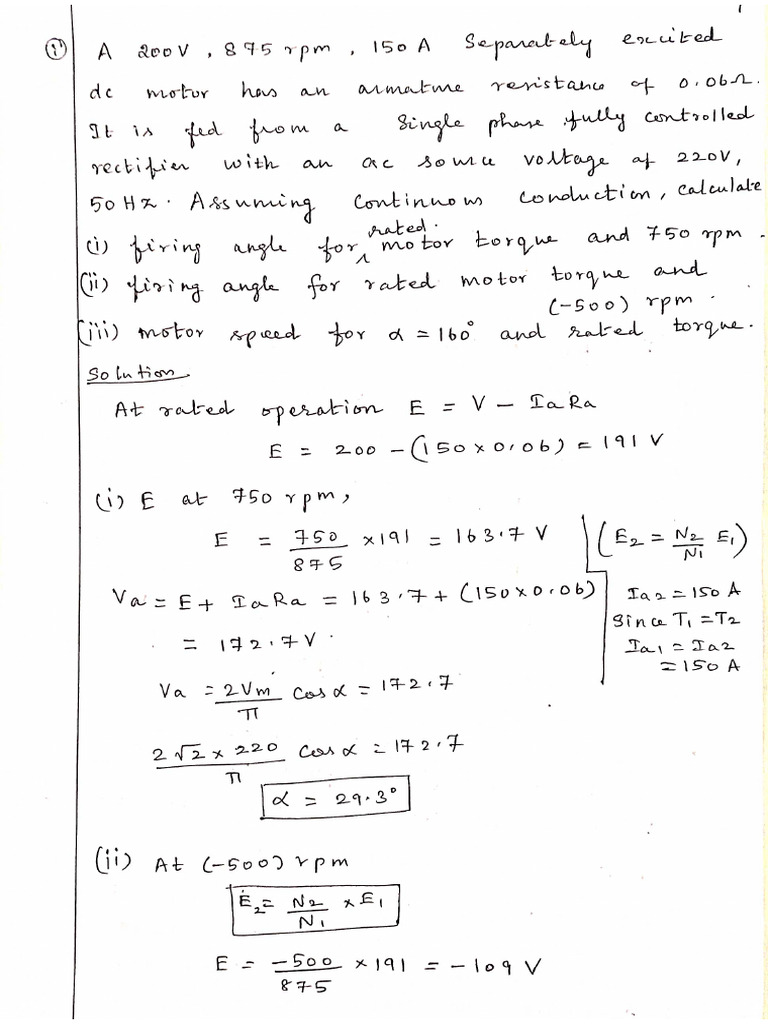 1
(1) A 200V, 875 rpm, 150 A Separately excited
dc motor has an armature resistance of 0.06Ω.
It is fed from a Single phase fully controlled
rectifier with an ac source voltage of 220V,
50 Hz. Assuming Continuous Conduction, Calculate
(i) firing angle for rated motor torque and 750 rpm.
(ii) firing angle for rated motor torque and
(-500) rpm.
(iii) motor speed for α = 160° and rated torque.
Solution
At rated operation E = V - IaRa
E = 200 - (150 x 0.06) = 191 V
(i) E at 750 rpm,
E = 750/875 x 191 = 163.7 V
(E2 = N2/N1 E1)
Va = E + IaRa = 163.7 + (150 x 0.06)
= 172.7 V.
Ia2 = 150 A
Since T1 = T2
Ia1 = Ia2
= 150 A
Va = 2Vm/π Cos α = 172.7
2√2 x 220/π Cos α = 172.7
α = 29.3°
(ii) At (-500) rpm
E2 = N2/N1 x E1
E = -500/875 x 191 = -109 V